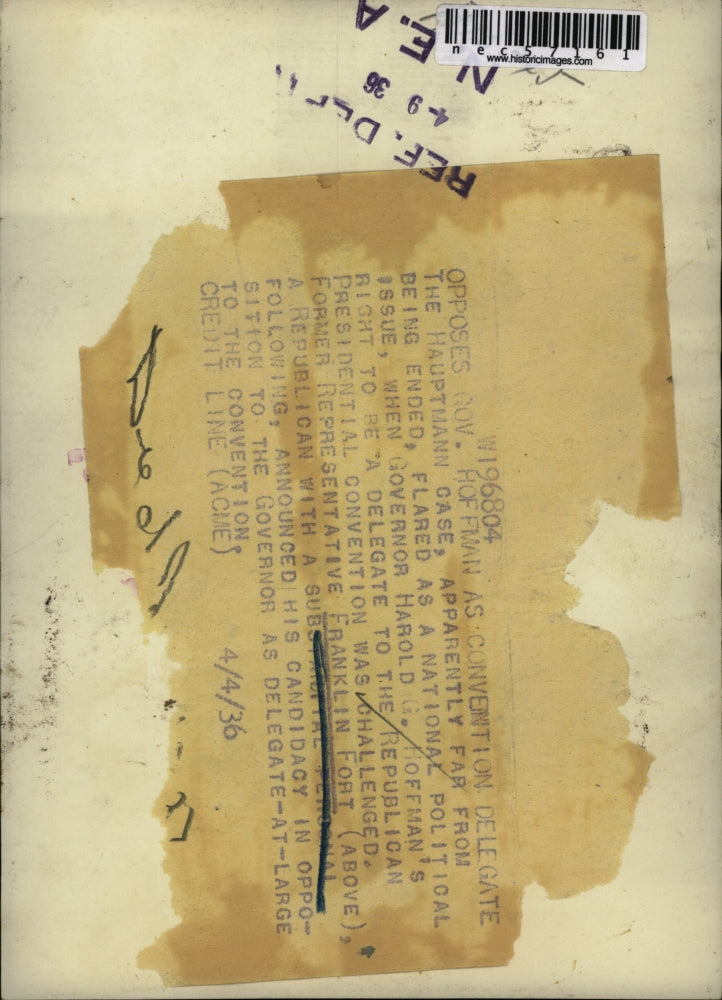 nec57161
www.historicimages.com
N.E.A
4-9 36
REF. DEPT.
W196804
OPPOSES GOV. HOFFMAN AS CONVENTION DELEGATE
THE HAUPTMANN CASE, APPARENTLY FAR FROM
BEING ENDED, FLARED AS A NATIONAL POLITICAL
ISSUE, WHEN GOVERNOR HAROLD G. HOFFMAN'S
RIGHT TO BE A DELEGATE TO THE REPUBLICAN
PRESIDENTIAL CONVENTION WAS CHALLENGED.
FORMER REPRESENTATIVE FRANKLIN FORT (ABOVE),
A REPUBLICAN WITH A SUBSTANTIAL PERSONAL
FOLLOWING, ANNOUNCED HIS CANDIDACY IN OPPO-
SITION TO THE GOVERNOR AS DELEGATE-AT-LARGE
TO THE CONVENTION.
CREDIT LINE (ACME) 4/4/36